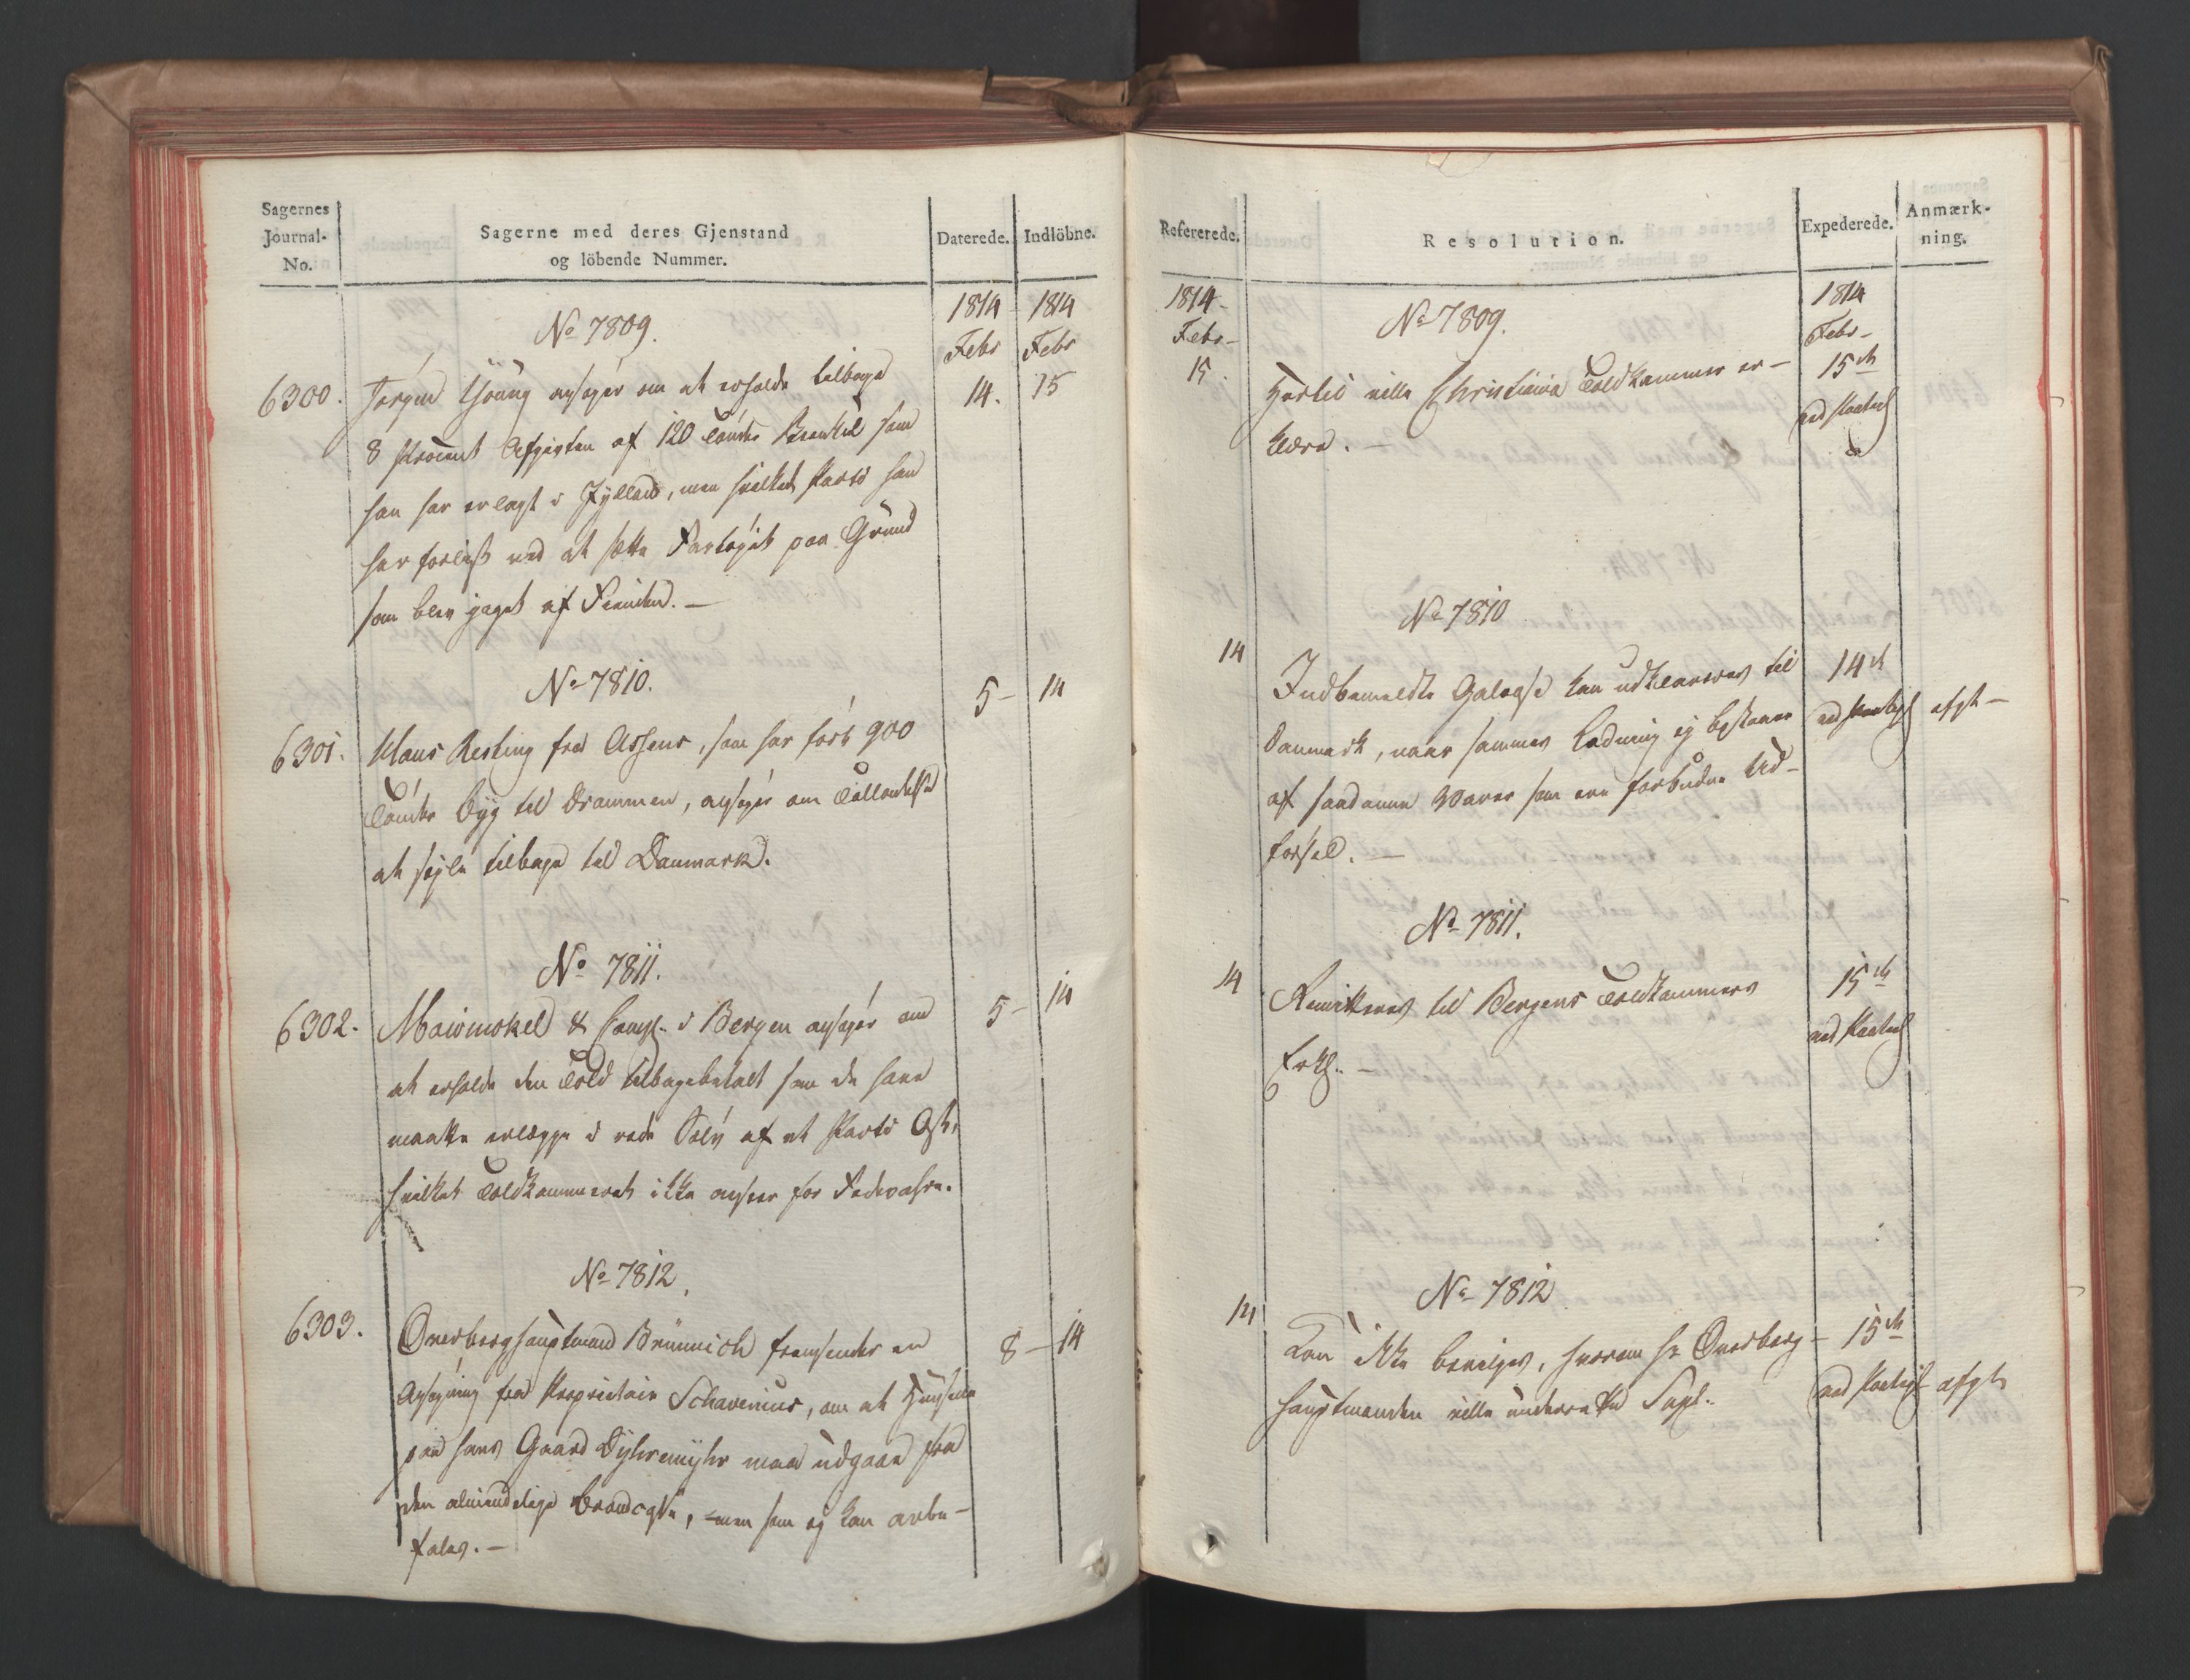 Sagernes
Journal-
No.
Sagerne med deres Gjenstand
og löbende Nummer.
Daterede.
Indlöbne.
1814
Febr
1814
Febr
No 7809.
6300. Jörgen Young ansøger om at erholde tilbage
14. 15
8 Procent Afgiften af 120 Tönder som
han har erlagt i Jylland, men hvilket Partie han
har forliist ved at sætte Fartøjet paa Grund
som blev jaget af Fienden. —
No 7810.
6301. Claus Resting fra Assens, som har ført 900
5 — 14
Tönder Byg til Drammen, ansøger om Tilladelse
at sejle tilbage til Danmark.
No 7811.
6302. Mowinckel & Comp. i Bergen ansøger om
5 — 14
at erholde den Told tilbagebetalt som de have
maatte erlægge i rede Sølv af et Partie Ost,
hvilket Toldkammeret ikke anseer for Fedevahre.
No 7812.
6303. Overberghauptmand Brünnich fremsender en
8 — 14
Ansøgning fra Proprietair Schavenius, om at Huusene
paa hans Gaard maa udgaae fra
den almindelige Brandcasse, men som ej kan anbe-
fales. —
Refererede.
Resolution.
Expederede.
Anmærk-
ning.
1814
Febr
15.
No 7809.
1814
Febr
15de
Hertil ville Christiania Toldkammer er-
klære. —
No 7810
14
Indbemeldte Galease kan udklareres til
14d
Danmark, naar sammes Ladning ej bestaaer
afgt —
af saadanne Varer som ere forbudne Ud-
førsel. —
No 7811.
14
Remitteres til Bergens Toldkammers
15de
Erkl. —
No 7812
14
Kan ikke bevilges, hvorom Hr Overberg-
15de
hauptmanden ville underrette Suppl.
afgt